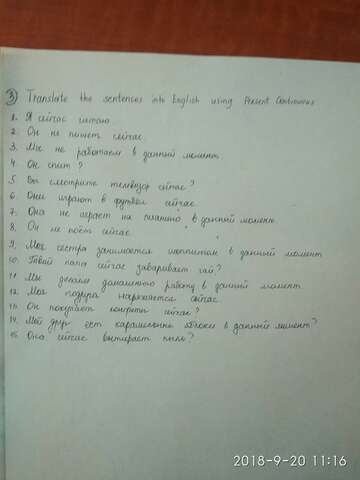 ③ Translate the sentences into English using Present Continuous
1. Я сейчас читаю
2. Он не пишет сейчас
3. Мы не работаем в данный момент
4. Он спит?
5. Вы смотрите телевизор сейчас?
6. Они играют в футбол сейчас
7. Она не играет на пианино в данный момент
8. Он не поёт сейчас
9. Моя сестра занимается шоппингом в данный момент
10. Твой папа сейчас заваривает чай?
11. Мы делаем домашнюю работу в данный момент
12. Моя подруга наряжается сейчас
13. Он покупает конфеты сейчас?
14. Мой друг ест карамельные яблоки в данный момент?
15. Она сейчас вытирает пыль?
2018-9-20 11:16